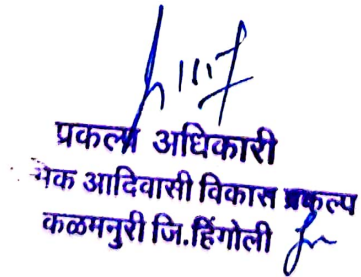 प्रकल्प अधिकारी
आदिवासी विकास प्रकल्प
कळमनुरी जि.हिंगोली